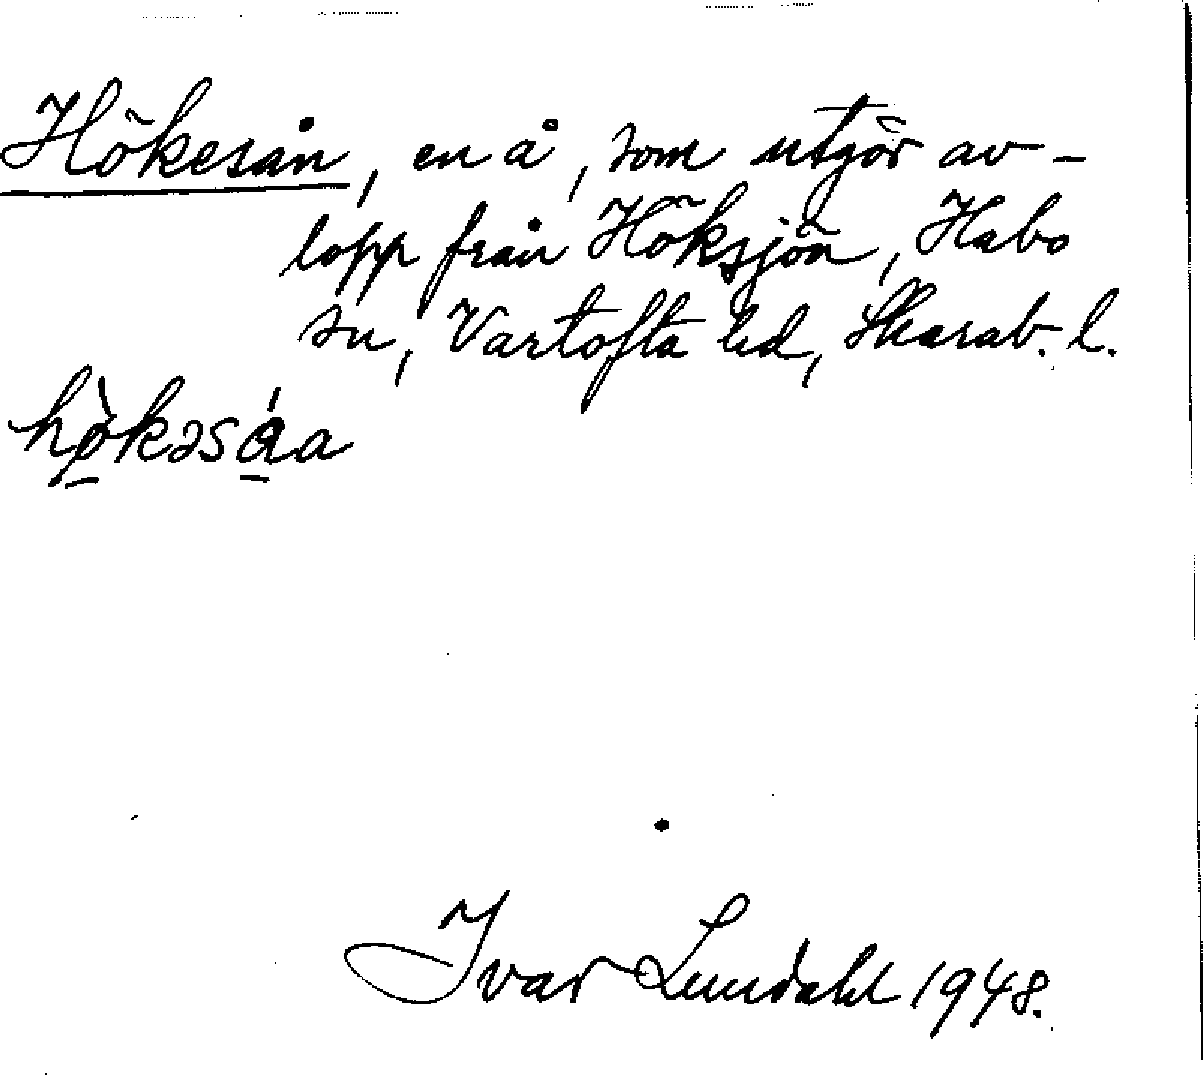 Hökesån, en å, som utgör av-
lopp från Höksjön, Habo
sn, Vartofta hd, Skarab. l.
hø̀kəsáa
Ivar Lundahl 1948.